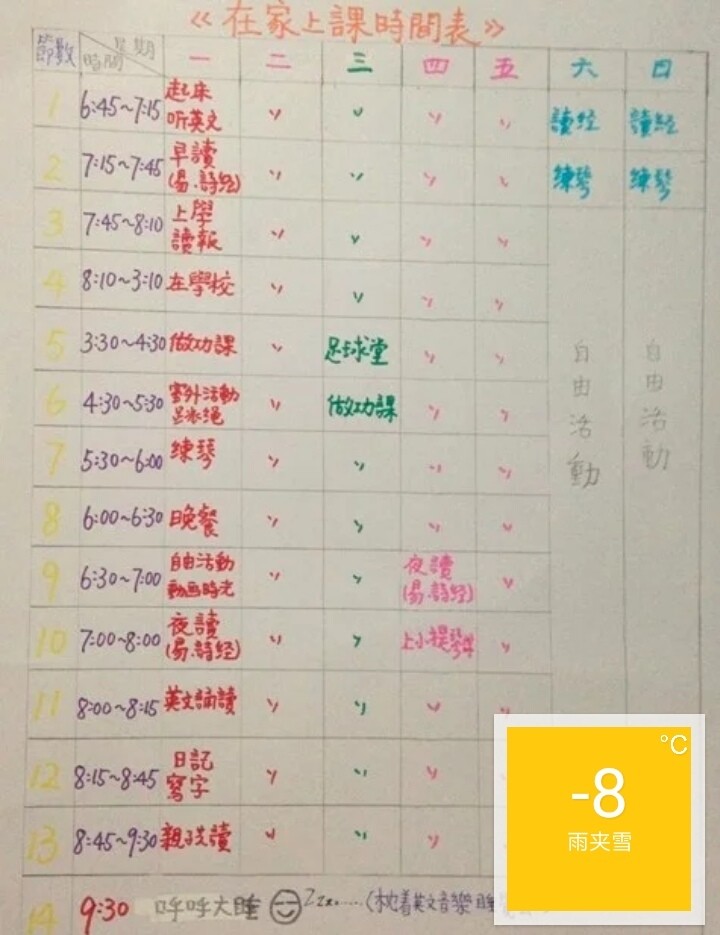 《在家上課時間表》
節數 時間 星期 一 二 三 四 五 六 日
1 6:45~7:15 起床 听英文 讀經 讀經
2 7:15~7:45 早讀 (易.詩經) 練琴 練琴
3 7:45~8:10 上學 讀報
4 8:10~3:10 在學校
5 3:30~4:30 做功課 足球堂 自由活動 自由活動
6 4:30~5:30 室外活動 做功課
7 5:30~6:00 練琴
8 6:00~6:30 晚餐
9 6:30~7:00 自由活動 動画時光 夜讀 (易.詩經)
10 7:00~8:00 夜讀 (易.詩經) 上小提琴
11 8:00~8:15 英文誦讀
12 8:15~8:45 日記 寫字
13 8:45~9:30 親子共讀
14 9:30 呼呼大睡 Zzzz...... 着英文音樂睡
°C
-8
雨夹雪